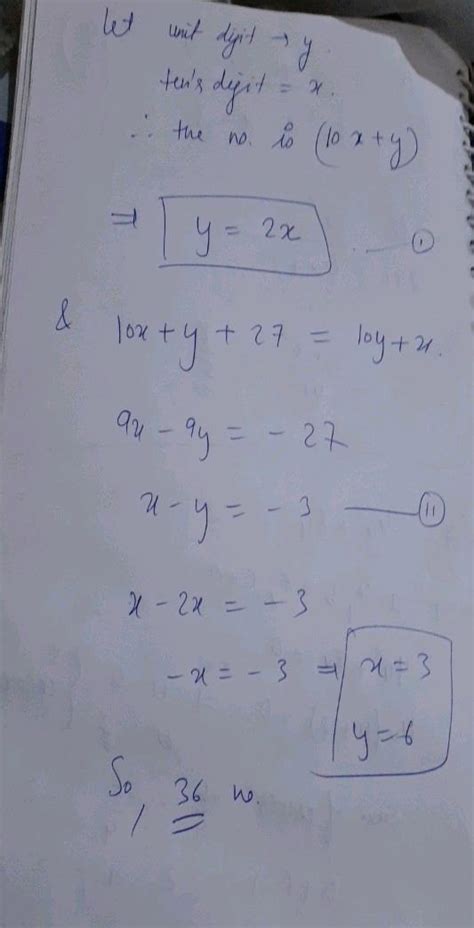 Let unit digit → y.
ten's digit = x.
∴ the no. is (10x+y)
⇒ y = 2x —— (I)
& 10x+y + 27 = 10y+x.
9x - 9y = - 27
x - y = - 3 —— (II)
x - 2x = - 3
-x = - 3 ⇒ x = 3
y = 6
So, 36 no.